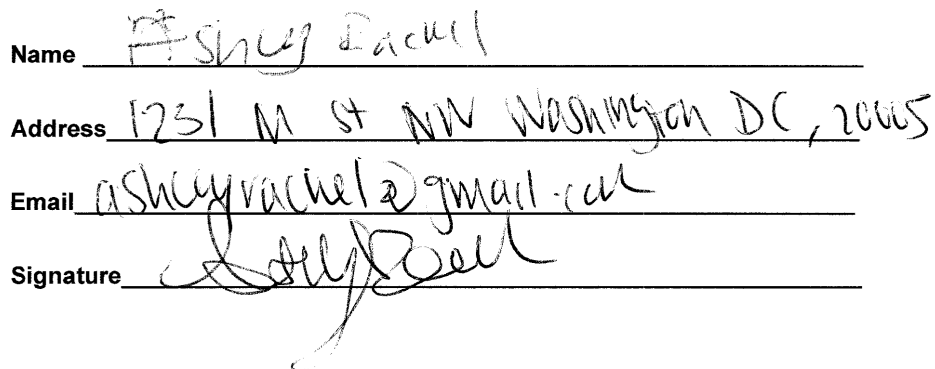 Name Ashley Rachel
Address 1231 M St NW Washington DC, 20005
Email ashleyrachel@gmail.com
Signature